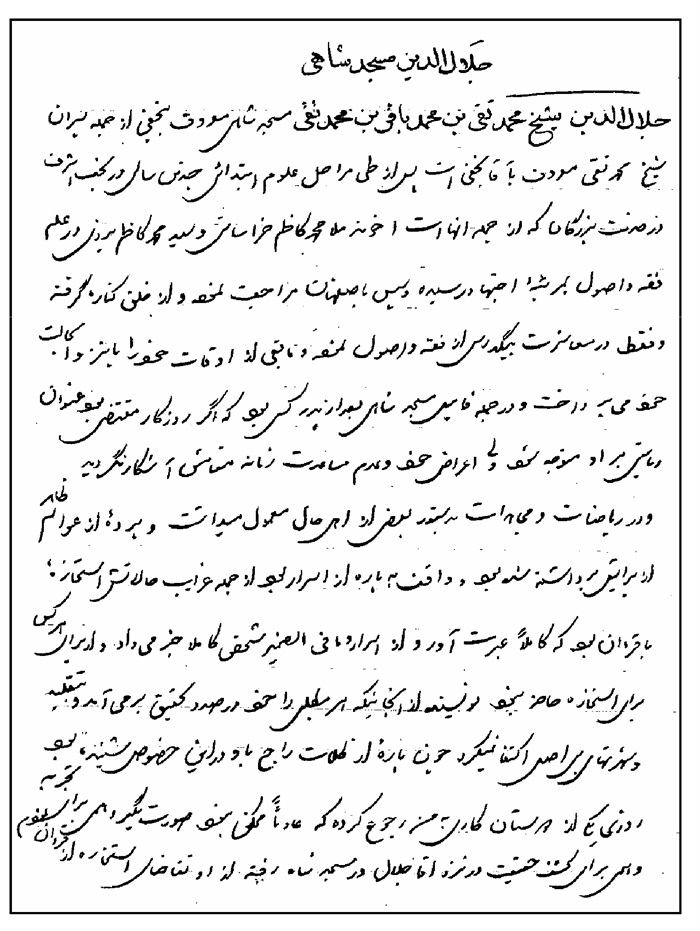 جلال‌الدین مسجد شاهی
جلال‌الدین شیخ محمد تقی بن محمد باقر بن محمد تقی مسجد شاهی معروف بنجفی از جمله پسران
شیخ محمد تقی معروف بآقا نجفی است پس از طی مراحل علوم ابتدائی چندین سالی در نجف اشرف
در خدمت بزرگان که از جمله آنها است اخوند ملا محمد کاظم خراسانی و سید محمد کاظم یزدی در علم
فقه و اصول بمرتبهٔ اجتهاد رسیده و سپس باصفهان مراجعت نمود و از خلق کناره گرفته
و فقط درس از فقه و اصول نموده و مابقی از اوقات خود را بانزوا
خود می‌پرداخت و در جمله فامیل مسجد شاهی بعد از پدر کسی بود که اگر روزگار مقتضی بود عنوان
ریاستی بر او متوجه میشد ولی اعراض خود و عدم مساعدت زمانه مقامش آشکار نگردید
و در ریاضات و مجاهدات بدستور بعضی از اهل حال معمول میداشت و پردهٔ از عوالم ظاهر
از برایش برداشته شده بود و واقف به پاره از اسرار بود از جمله غرایب حالاتش استخاره
با قرآن بود که کاملاً عبرت آور و از اسرار و مافی الضمیر شخص کاملا خبر می‌داد و از برای هر کس
برای استخاره حاضر نبود نویسنده از آنجائیکه هر مطلبی را خود در صدد تحقیق برمی‌آمد و بتقلید
و شهرتهای بی اصل اکتفا نمیکرد چون پارهٔ از کلمات راجع باو در این خصوص شنیده بود
روزی یکی از دوستان کاری به من رجوع کرده که عادتاً ممکن نبود صورت بگیرد من برای تجربه
و هم برای کشف حقیقت در نزد آقا جلال در مسجد شاه رفته از او تقاضای استخاره از قرآن نمودم